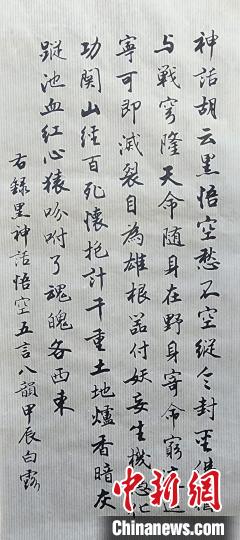 神話胡云黑悟空愁不空縱令封圣佛
与戰穹隆天命隨身在野身寄命窮
寧可即滅裂自為雄根器付妖妄生機
功関山經百死懷抱計千重土地爐香暗灰
蹤池血紅心猿吩咐了魂魄各西東
右錄黑神話悟空五言八韻甲辰白露
中新网
www.chinanews.com